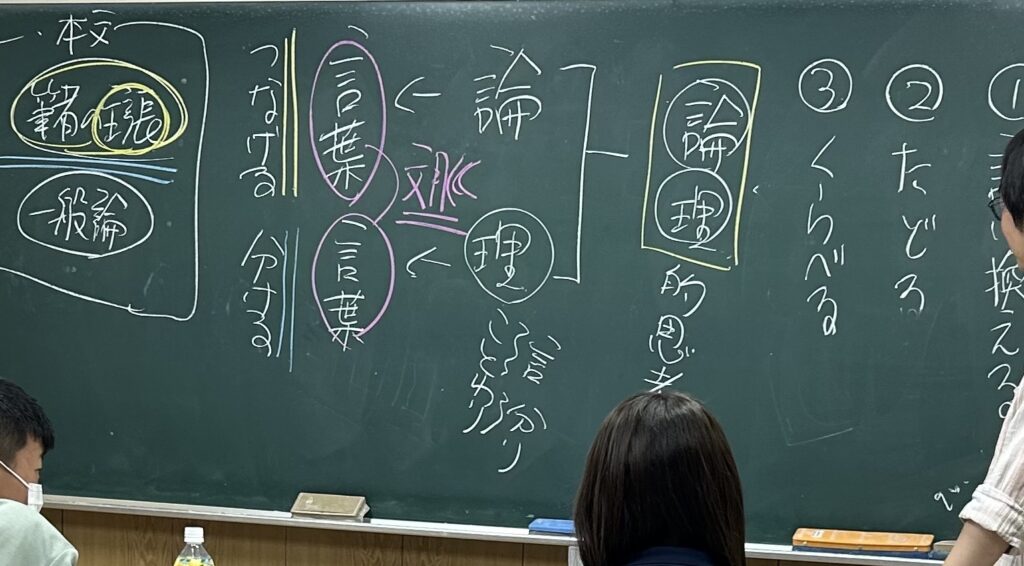 ① 言い換える
② たどる
③ くらべる
論理的思考
論 ← 言葉 つなげる
理 ← 言葉 分ける
文脈
一、本文
筆者の主張
一般論